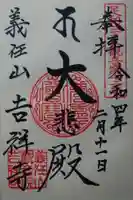 奉拝 令和四年
二月十一日
大悲殿
義任山 吉祥寺